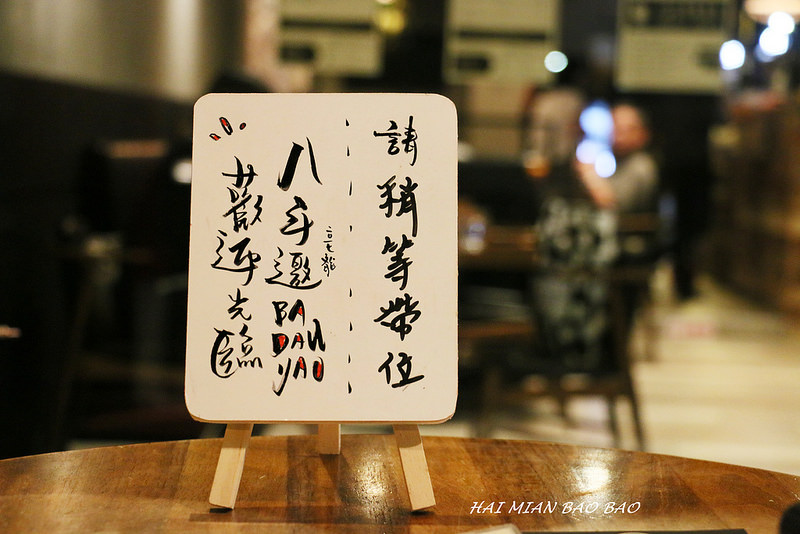 請稍等帶位
八斗邀
BA
DAU
YAO
歡迎光臨
HAI MIAN BAO BAO